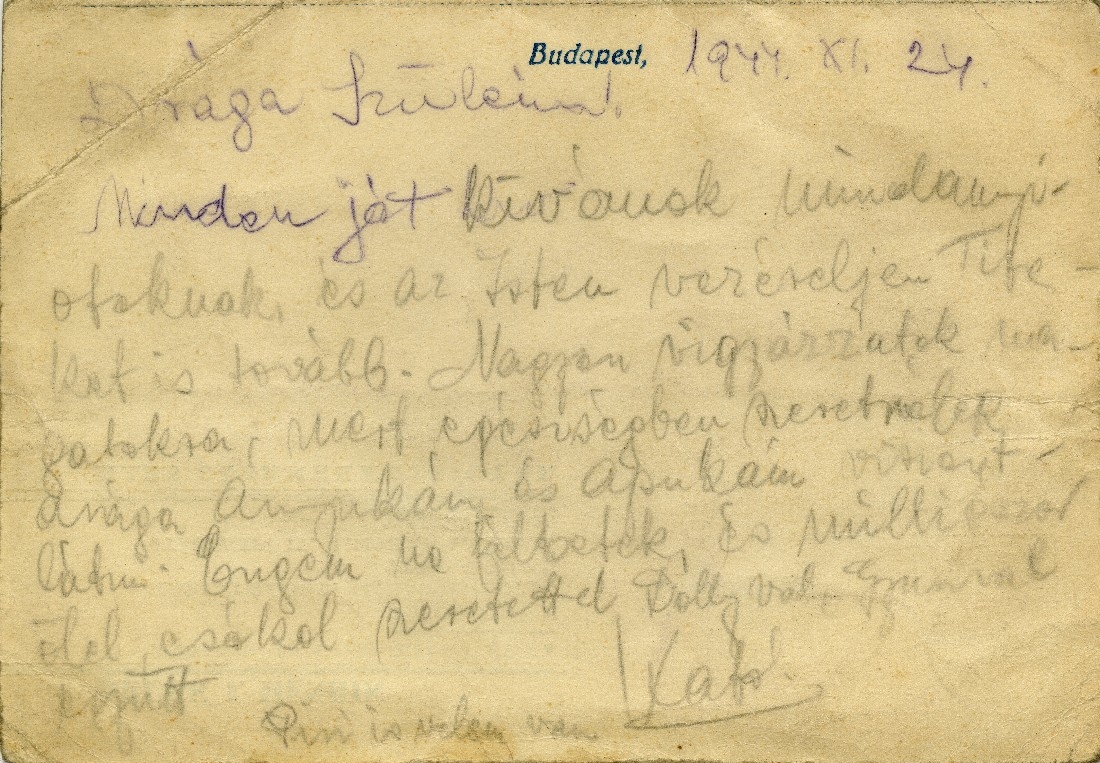 Budapest, 1944. XI. 24.
Drága Szüleim!
Minden ját kívánok mindanyi-
otoknak, és az Isten vezéreljen Tite-
ket is tovább. Nagyon vigyázzatok ma-
gatokra, mert egészségben szeretnélek
drága Anyukám és Apukám viszont-
látni. Engem ne féltsetek, és milliószor
ölel, csókol szeretettel Dollyval,
együtt
Kató.
Piri is velem van